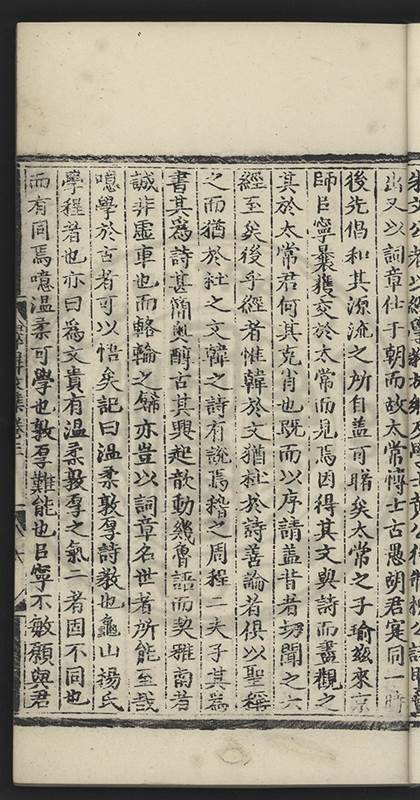 出又以詞章仕于朝而故太常愽士古愚胡君寔同一時
後先倡和其源流之所自盖可睹矣太常之子瑜茲來京
師臣寧曩獲交於太常而見焉因得其文與詩而盡觀之
其於太常君何其克肖也既而以序請盖昔者切聞之六
經至矣後乎經者惟韓於文猶杜於詩善論者俱以聖稱
之而猶於杜之文韓之詩有說焉揆之周程二夫子其爲
書其爲詩甚簡奥醇古其興起歆動幾曾語而契雅啇者
誠非虛車也而輅輪之餙亦豈以詞章名世者所能至哉
噫學於古者可以悟矣記曰温柔敦厚詩敎也龜山楊氏
學程者也亦曰爲文貴有温柔敦厚之氣二者固不同也
而有同焉噫温柔可學也敦厚難能也臣寧不敏願與君